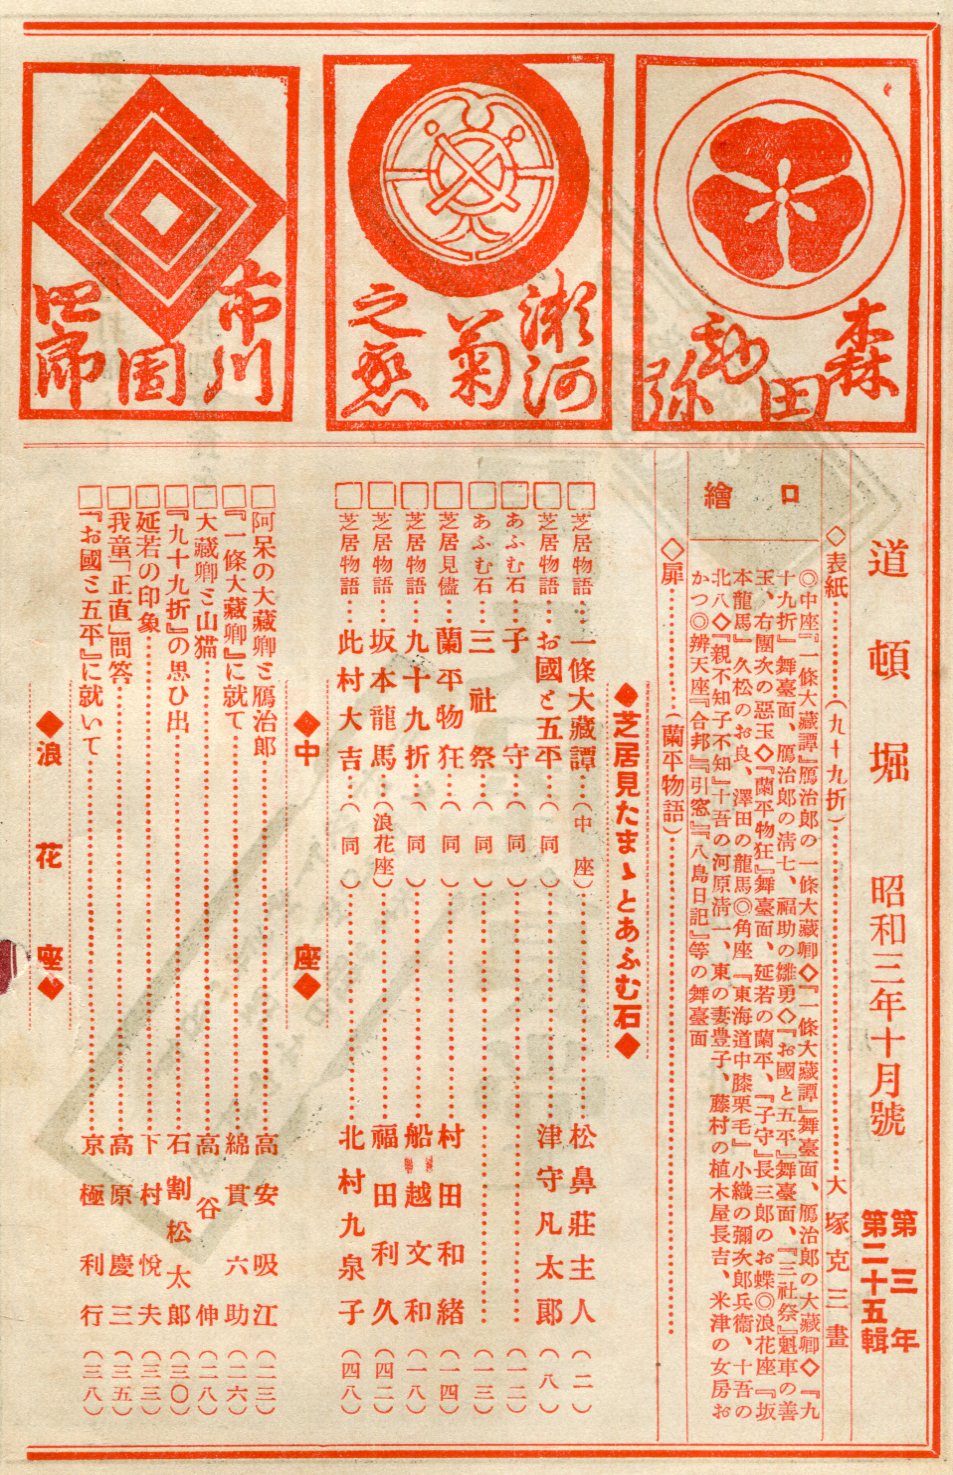 森田勘弥
瀬河菊之丞
市川團四郎
道頓堀 昭和三年十月號 第三年第二十五輯
◇表紙………(九十九折)………大塚克三畫
口繪
◎中座『一條大藏譚』鴈治郎の一條大藏卿◇『一條大藏譚』舞臺面、鴈治郎の大藏卿◇『九
十九折』舞臺面、鴈治郎の淸七、福助の雛勇◇『お國と五平』舞臺面、『三社祭』魁車の善
玉、右團次の惡玉◇『蘭平物狂』舞臺面、延若の蘭平、『子守』長三郎のお蝶◎浪花座『坂
本龍馬』久松のお良、澤田の龍馬◎角座『東海道中膝栗毛』小織の彌次郎兵衞、十吾の
北八◇『親不知子不知』十吾の河原淸一、東の妻豊子、藤村の植木屋長吉、米津の女房お
かつ◎辨天座『合邦』『引窓』『八島日記』等の舞臺面
◇扉………(蘭平物語)………
◆芝居見たまゝとあふむ石◆
□芝居物語…一條大藏譚…(中座)………松鼻莊主人(二)
□芝居物語…お國と五平…(同)………津守凡太郎(八)
□あふむ石…子守…(同)………(一二)
□あふむ石…三社祭…(同)………(一三)
□芝居見儘…蘭平物狂…(同)………村田和緒(一四)
□芝居物語…九十九折…(同)………船越文和(一八)
□芝居物語…坂本龍馬…(浪花座)………福田利久(四二)
□芝居物語…此村大吉…(同)………北村九泉子(四八)
◆中座◆
□阿呆の大藏卿ミ鴈治郎………高安吸江(二三)
□『一條大藏卿』に就て………綿貫六助(二六)
□大藏卿ミ山猫………高谷伸(二八)
□『九十九折』の思ひ出………石割松太郎(三〇)
□延若の印象………下村悅夫(三三)
□我童「正直」問答………高原慶三(三五)
□『お國ミ五平』に就いて………京極利行(三八)
◆浪花座◆